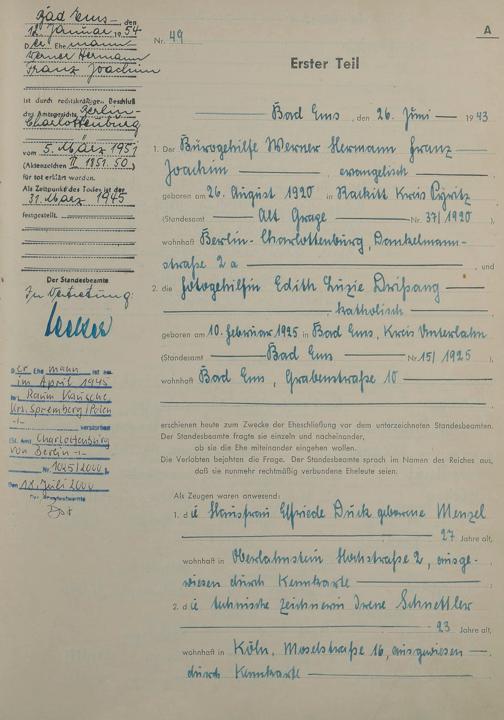 Bad Ems, den
12. Januar 1954
Der Ehemann
Werner Hermann
Franz Joachim
ist durch rechtskräftigen Beschluß
des Amtsgerichts Berlin-
Charlottenburg
vom 5. März 1951
(Aktenzeichen II 1851.50)
für tot erklärt worden.
Als Zeitpunkt des Todes ist der
31. März 1945
festgestellt.
Der Standesbeamte
In Vertretung:
Der Ehemann ist am
im April 1945
in Raum Kausche
Krs. Spremberg/Polen
-/- verstorben
(St. Amt Charlottenburg
von Berlin -/-
Nr. 1025/2000)
Den 18. Juli 2000
Der Standesbeamte
Nr. 49
A
Erster Teil
Bad Ems, den 26. Juni 1943
1. Der Bürogehilfe Werner Hermann Franz
Joachim , evangelisch
geboren am 26. August 1920 in Rackitt Kreis Pyritz
(Standesamt Alt Grape Nr. 37/1920),
wohnhaft Berlin-Charlottenburg, Dankelmann-
straße 2a , und
2. die Fotogehilfin Edith Luzie Drißang
, katholisch
geboren am 10. Februar 1925 in Bad Ems, Kreis Unterlahn
(Standesamt Bad Ems Nr. 15/1925),
wohnhaft Bad Ems, Grabenstraße 10
erschienen heute zum Zwecke der Eheschließung vor dem unterzeichneten Standesbeamten.
Der Standesbeamte fragte sie einzeln und nacheinander,
ob sie die Ehe miteinander eingehen wollen.
Die Verlobten bejahten die Frage. Der Standesbeamte sprach im Namen des Reiches aus,
daß sie nunmehr rechtmäßig verbundene Eheleute seien.
Als Zeugen waren anwesend:
1. die Hausfrau Elfriede Dück geborene Menzel
27 Jahre alt,
wohnhaft in Oberlahnstein Hochstraße 2, ausge-
wiesen durch Kennkarte
2. die technische Zeichnerin Irene Schnettler
23 Jahre alt,
wohnhaft in Köln, Moselstraße 16, ausgewiesen
durch Kennkarte